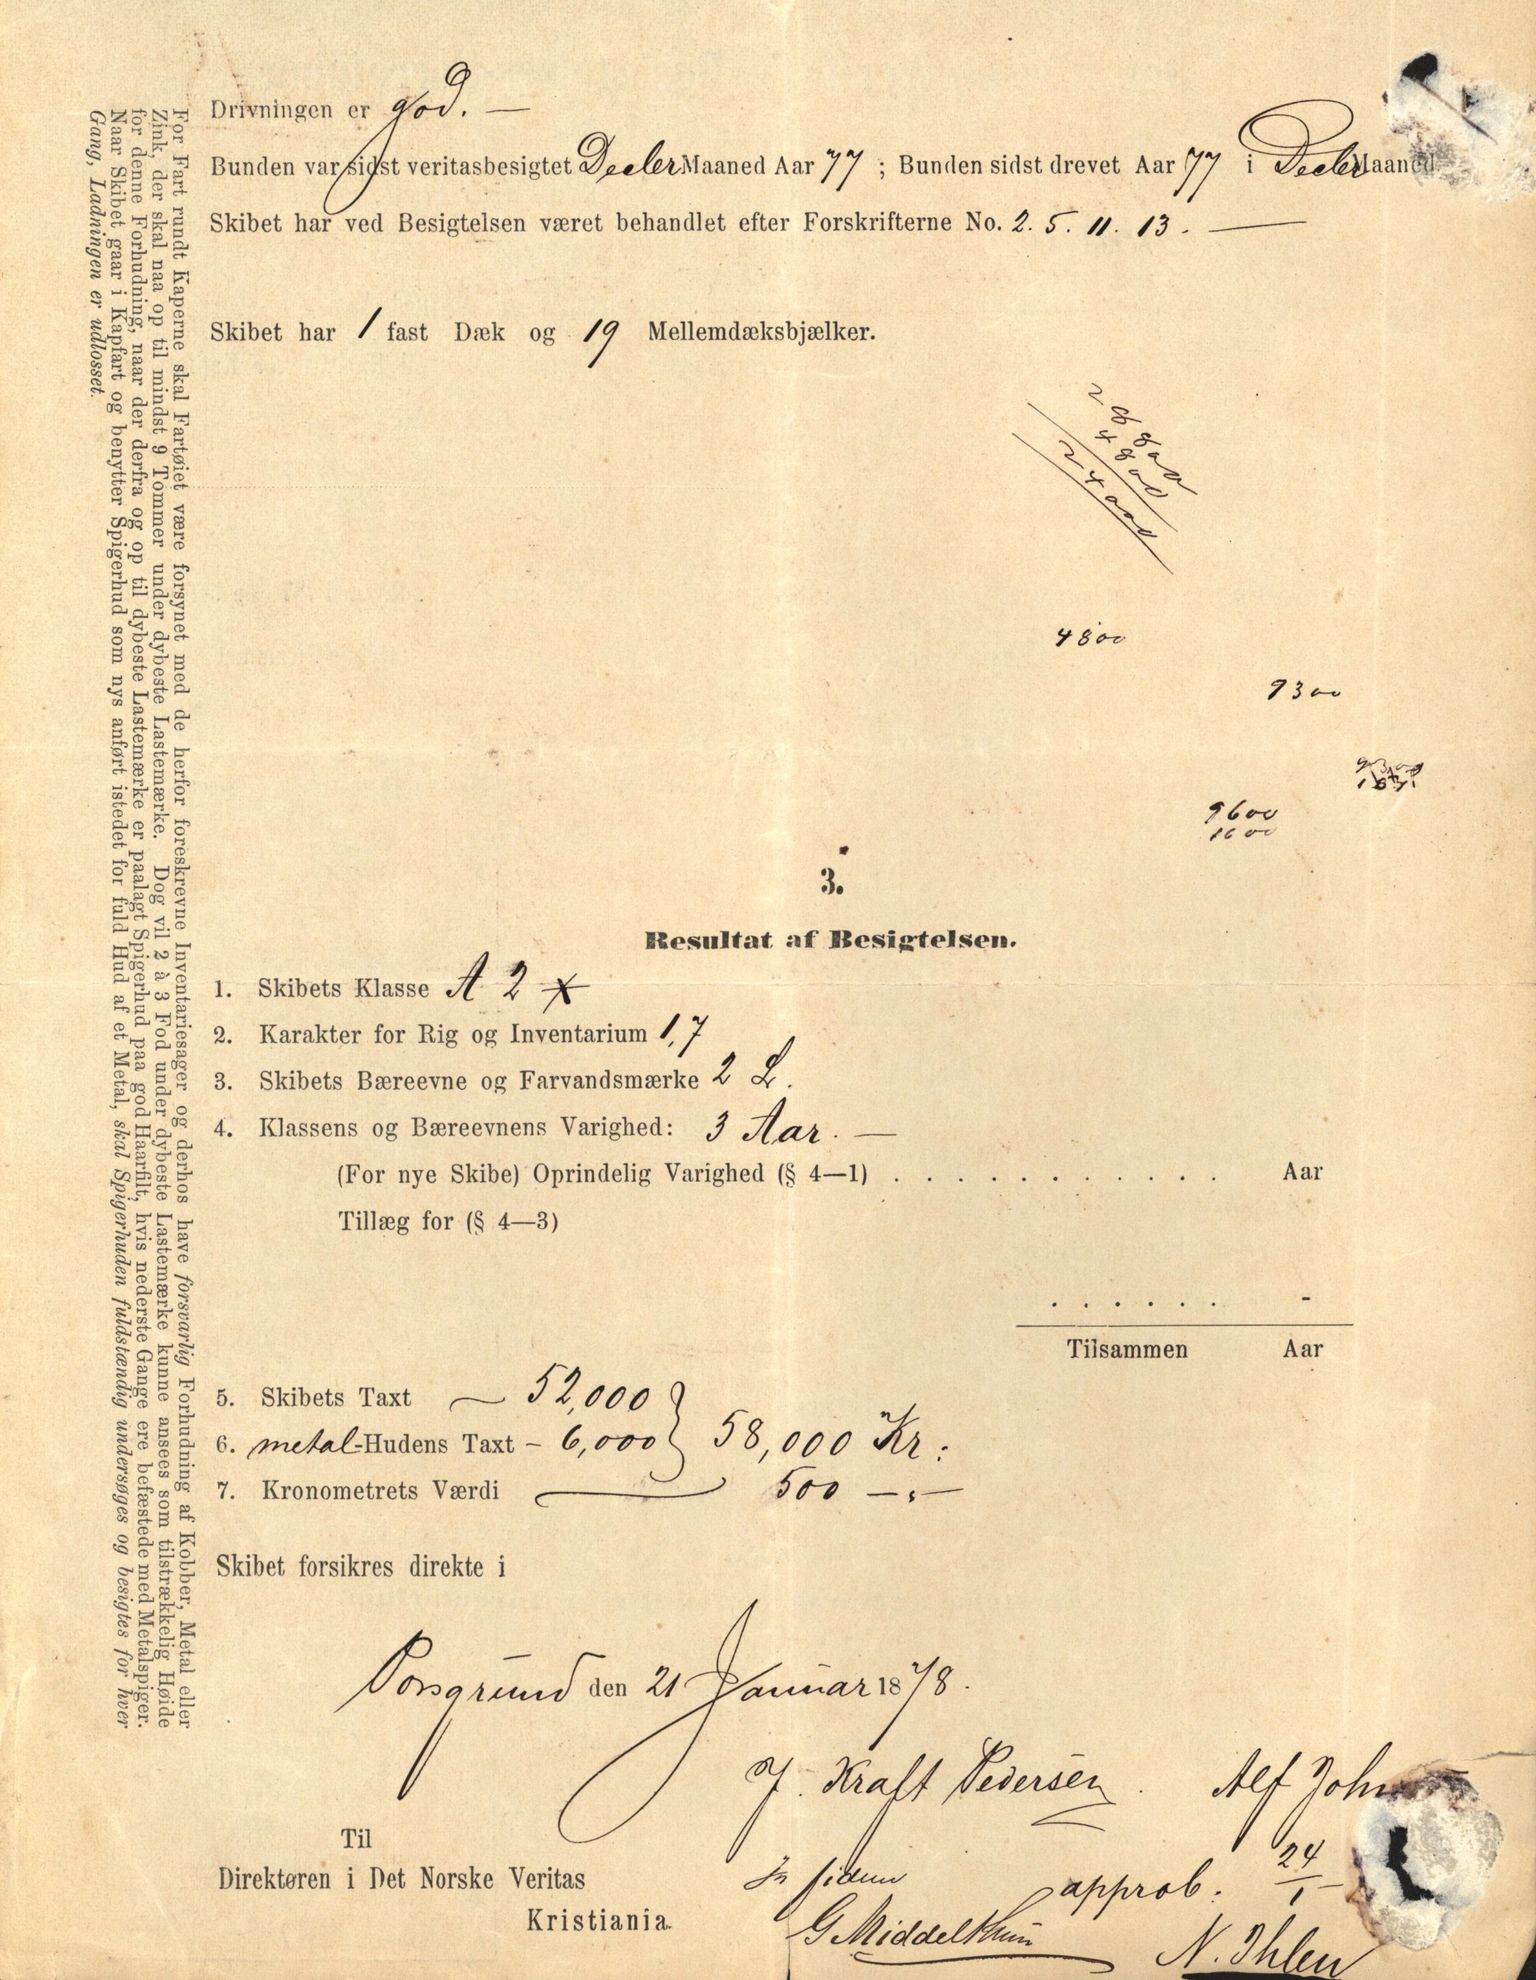 Drivningen er god. —
Bunden var sidst veritasbesigtet Decler Maaned Aar 77 ; Bunden sidst drevet Aar 77 i Decler Maaned
Skibet har ved Besigtelsen været behandlet efter Forskrifterne No. 2. 5. 11. 13. —
Skibet har 1 fast Dæk og 19 Mellemdæksbjælker.
4800
24000
4800
9300
9600
1600
3.
Resultat af Besigtelsen.
1. Skibets Klasse A 2
2. Karakter for Rig og Inventarium 1,7
3. Skibets Bæreevne og Farvandsmærke 2 L.
4. Klassens og Bæreevnens Varighed: 3 Aar. —
(For nye Skibe) Oprindelig Varighed (§ 4—1) . . . . . . . . . . . . Aar
Tillæg for (§ 4—3)
. . . . . . -
Tilsammen Aar
5. Skibets Taxt — 52,000
6. metal-Hudens Taxt - 6,000 } 58,000 Kr:
7. Kronometrets Værdi — 500 —„—
Skibet forsikres direkte i
Porsgrund den 21 Januar 1878.
J. Kraft Pedersen. Alf John
Til
Direktøren i Det Norske Veritas
Kristiania.
In fidem
G Middelthun
approb. 24/1
N. Ihlen
For Fart rundt Kaperne skal Fartøiet være forsynet med de herfor foreskrevne Inventariesager og derhos have forsvarlig Forhudning af Kobber, Metal eller
Zink, der skal naa op til mindst 9 Tommer under dybeste Lastemærke. Dog vil 2 à 3 Fod under dybeste Lastemærke kunne ansees som tilstrækkelig Høide
for denne Forhudning, naar der derfra og op til dybeste Lastemærke er paalagt Spigerhud paa god Haarfilt, hvis nederste Gange ere befæstede med Metalspiger.
Naar Skibet gaar i Kapfart og benytter Spigerhud som nys anført istedet for fuld Hud af et Metal, skal Spigerhuden fuldstændig undersøges og besigtes for hver
Gang, Ladningen er udlosset.